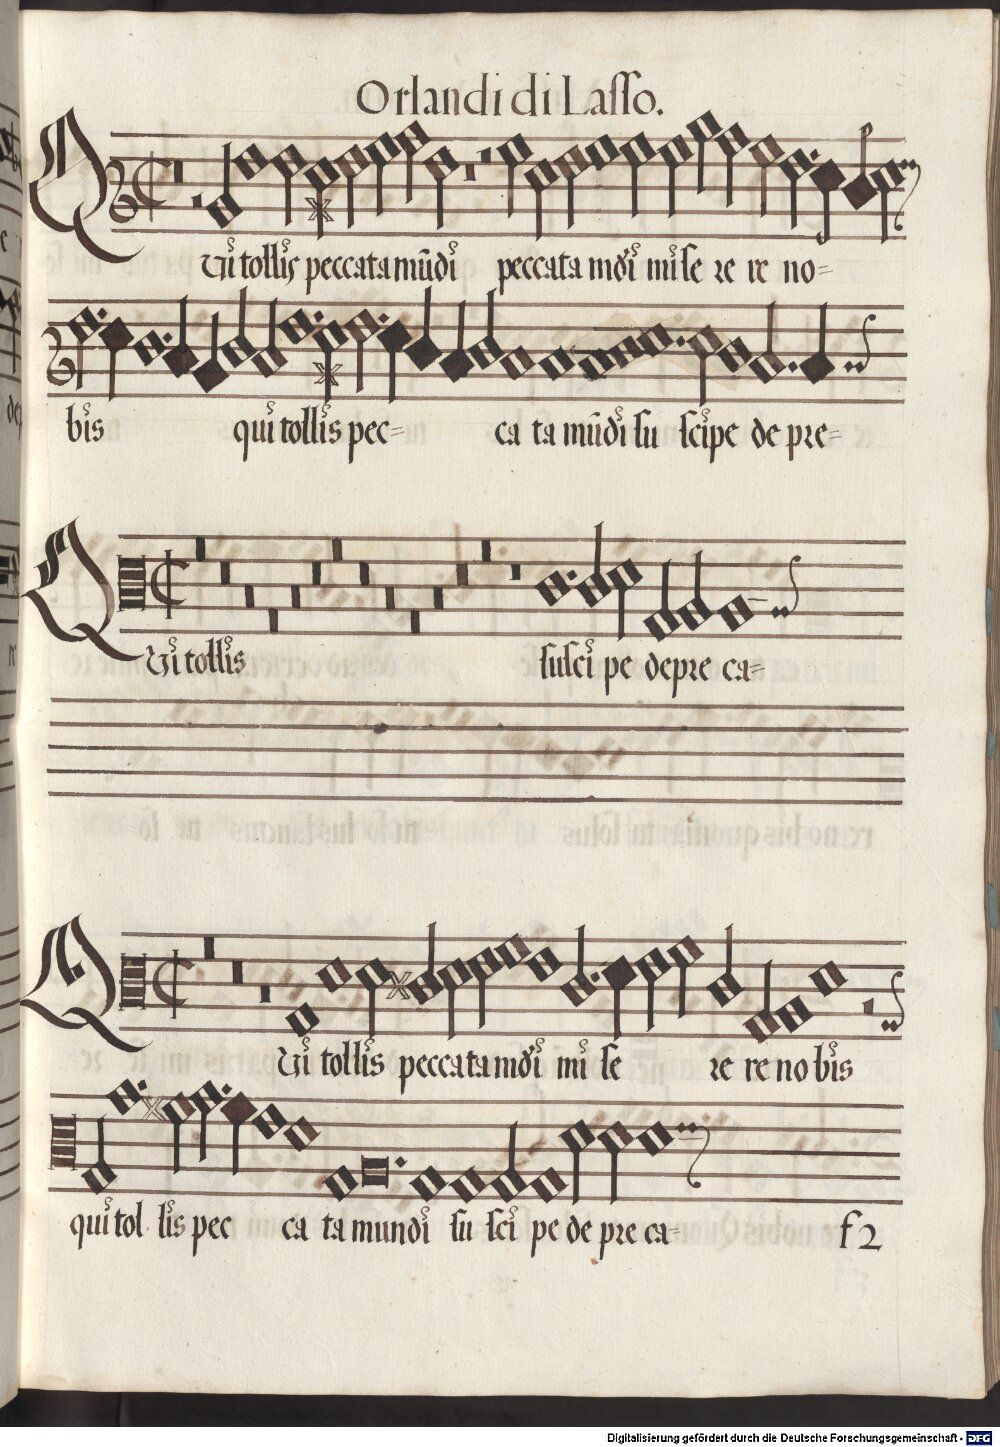 Orlandi di Lasso.
Qui tollis peccata mūdi peccata mūdi mise re re no=
bis qui tollis pec= ca ta mūdi su scipe de pre=
Qui tollis suscipe depre ca=
Qui tollis peccata mūdi mi se re re no bis
qui tol lis pec ca ta mundi su sci pe de pre ca=
f2
Digitalisierung gefördert durch die Deutsche Forschungsgemeinschaft - DFG